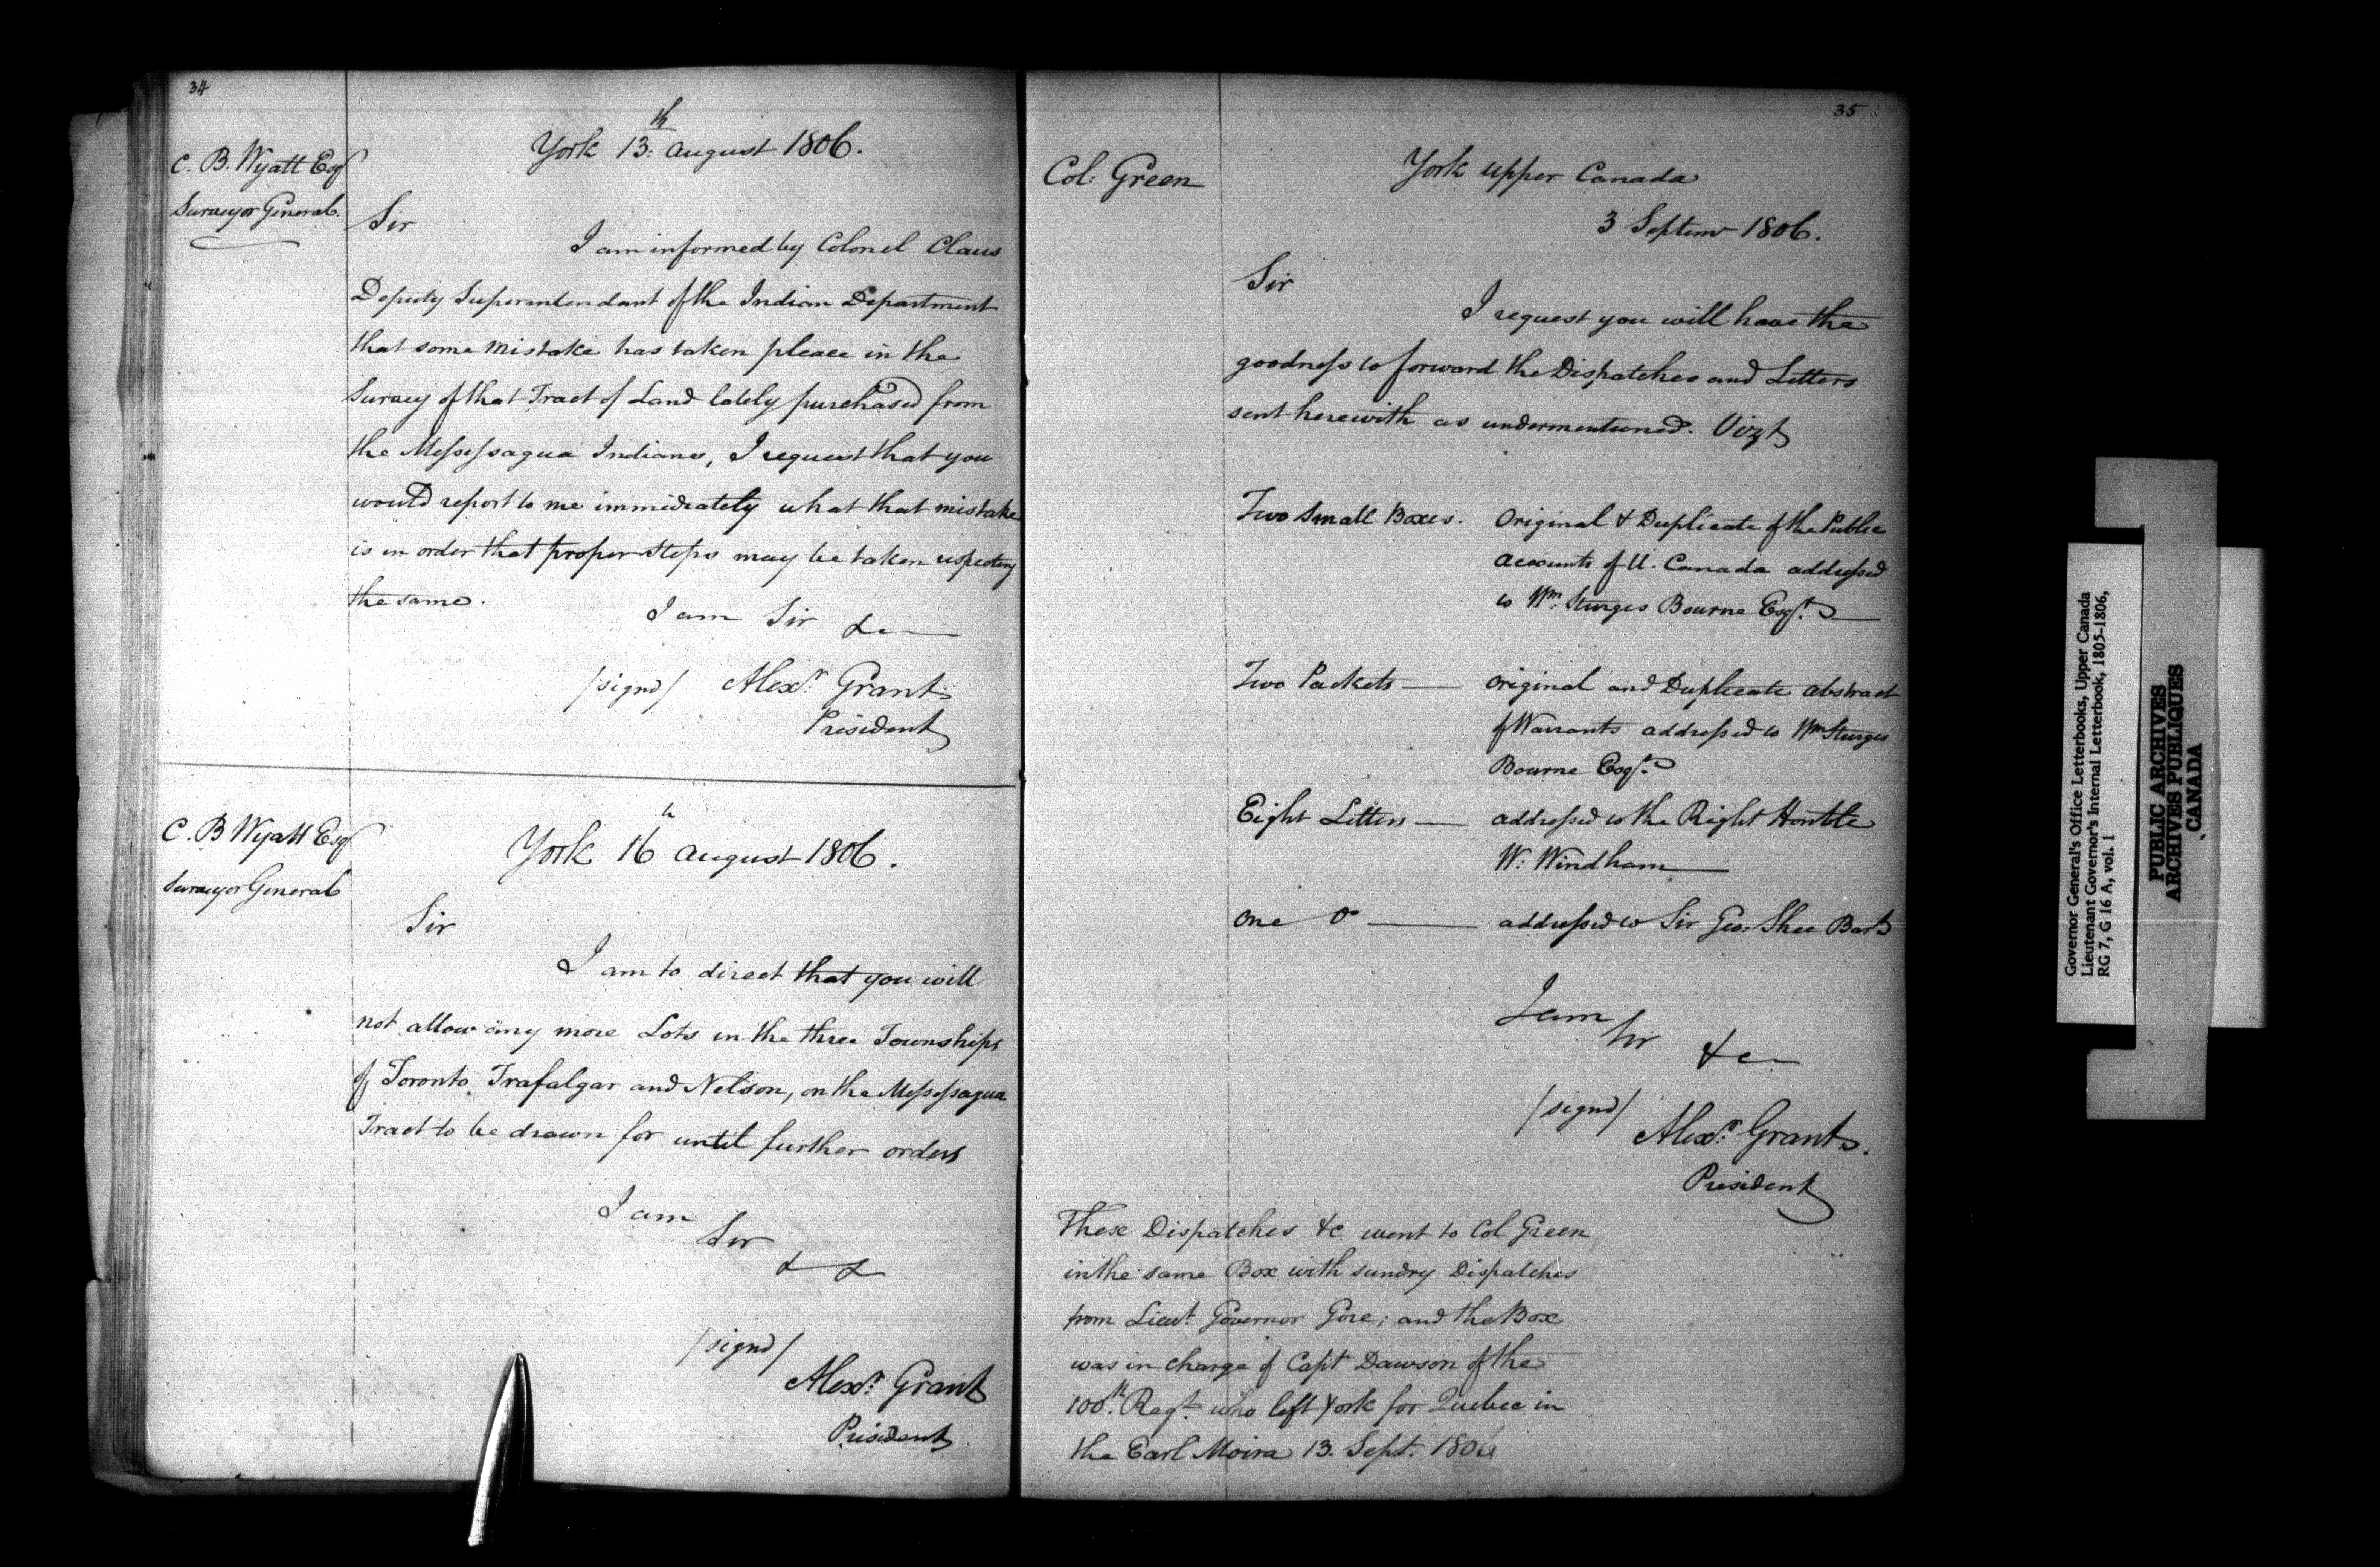 34
C. B. Wyatt Esq
Surveyor General.
York 13th: august 1806.
Sir
I am informed by Colonel Claus
Deputy Superintendant of the Indian Department
that some mistake has taken pleace in the
Survey of that Tract of Land lately purchased from
the Messessagua Indians, I request that you
would report to me immidiately what that mistake
is in order that proper steps may be taken respecting
the same.
I am Sir &c
/signd/ Alexr: Grant
President
C. B Wyatt Esq
Surveyor General
York 16h august 1806.
Sir
I am to direct that you will
not allow any more Lots in the three Townships
of Toronto, Trafalgar and Nelson, on the Messessagua
Tract to be drawn for until further orders
I am
Sir
& &
/signd/
Alexr: Grant
President
35
Col: Green
York upper Canada
3 Septemr 1806.
Sir
I request you will have the
goodness to forward the Dispatches and Letters
sent herewith as undermentioned. Vizt
Two Small Boxes. Original & Duplicate of the Public
accounts of U. Canada addressed
to Wm: Sturges Bourne Esqr.
Two Packets — original and Duplicate abstract
of Warrants addressed to Wm Sturges
Bourne Esqr.
Eight Letters — addressed to the Right Honble
W: Windham
One Do — addressed to Sir Geo. Shee Bart
I am
Sir
&c
/signd/
Alexr: Grant.
President
These Dispatches &c went to Col Green
in the same Box with sundry Dispatches
from Lieut. Governor Gore; and the Box
was in charge of Capt Dawson of the
100th. Regt. who left York for Quebec in
the Earl Moira 13. Sept. 1806
Governor General's Office Letterbooks, Upper Canada
Lieutenant Governor's Internal Letterbook, 1805-1806,
RG 7, G 16 A, vol. 1
PUBLIC ARCHIVES
ARCHIVES PUBLIQUES
CANADA